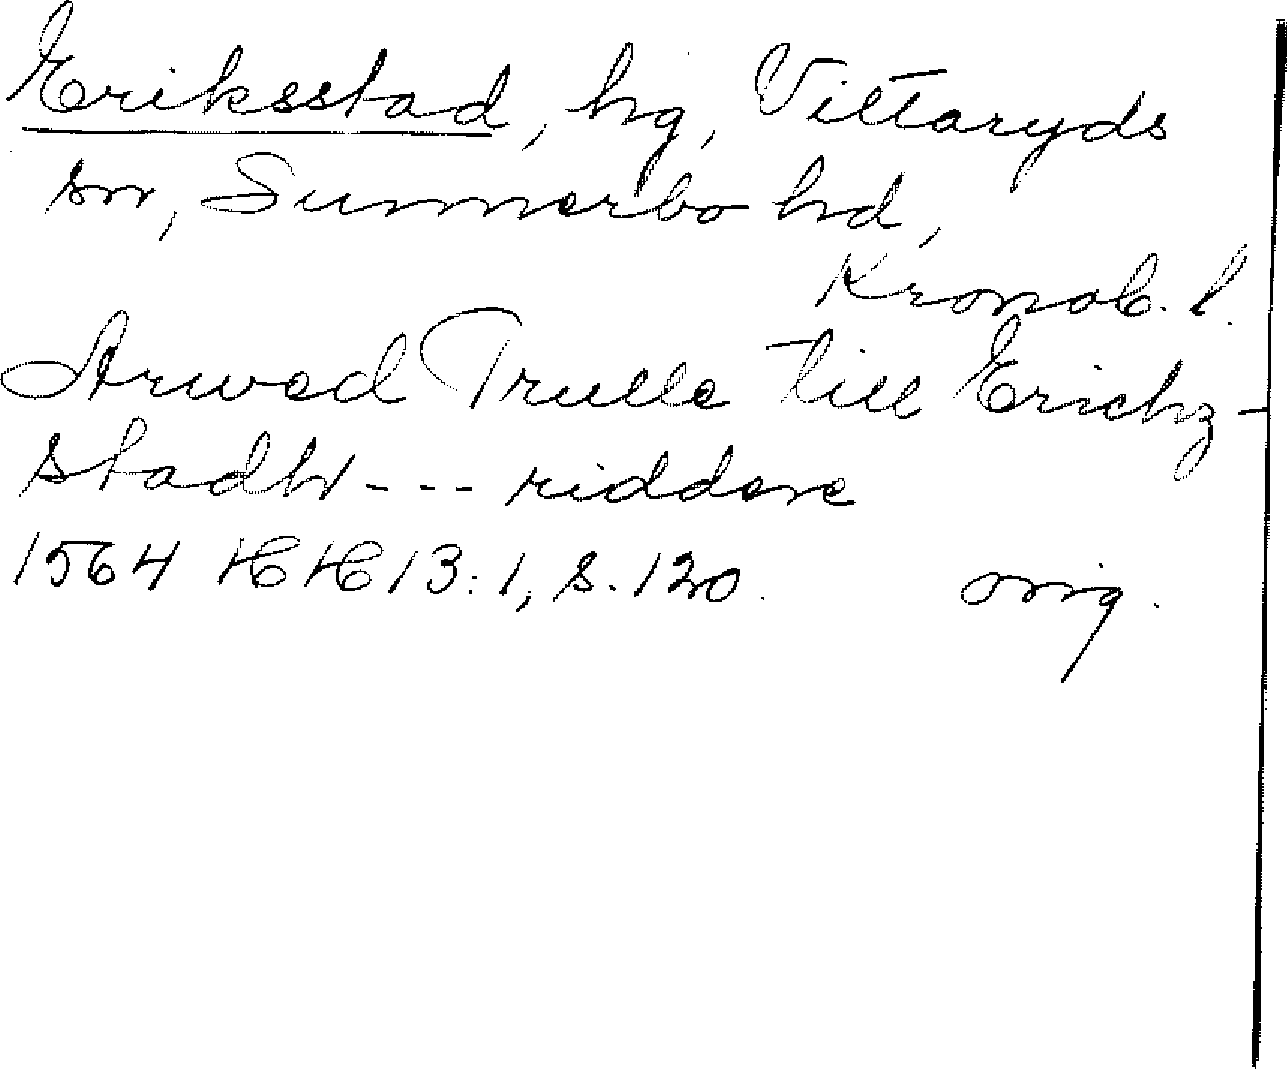 Eriksstad, hg, Vittaryds
sn, Sunnerbo hd,
Kronob. l.
Arwed Trulle till Erichz-
stadh --- riddere
1564 HH 13:1, s. 120. orig.